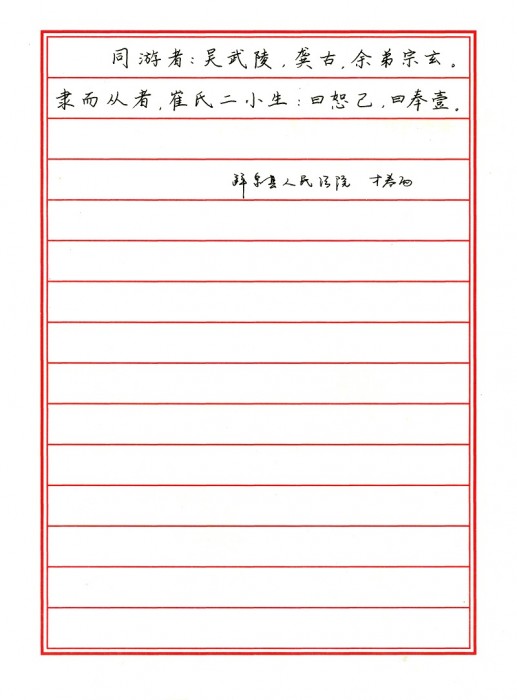 同游者:吴武陵,龚古,余弟宗玄。
隶而从者,崔氏二小生:曰恕己,曰奉壹。
辟泉县人民法院